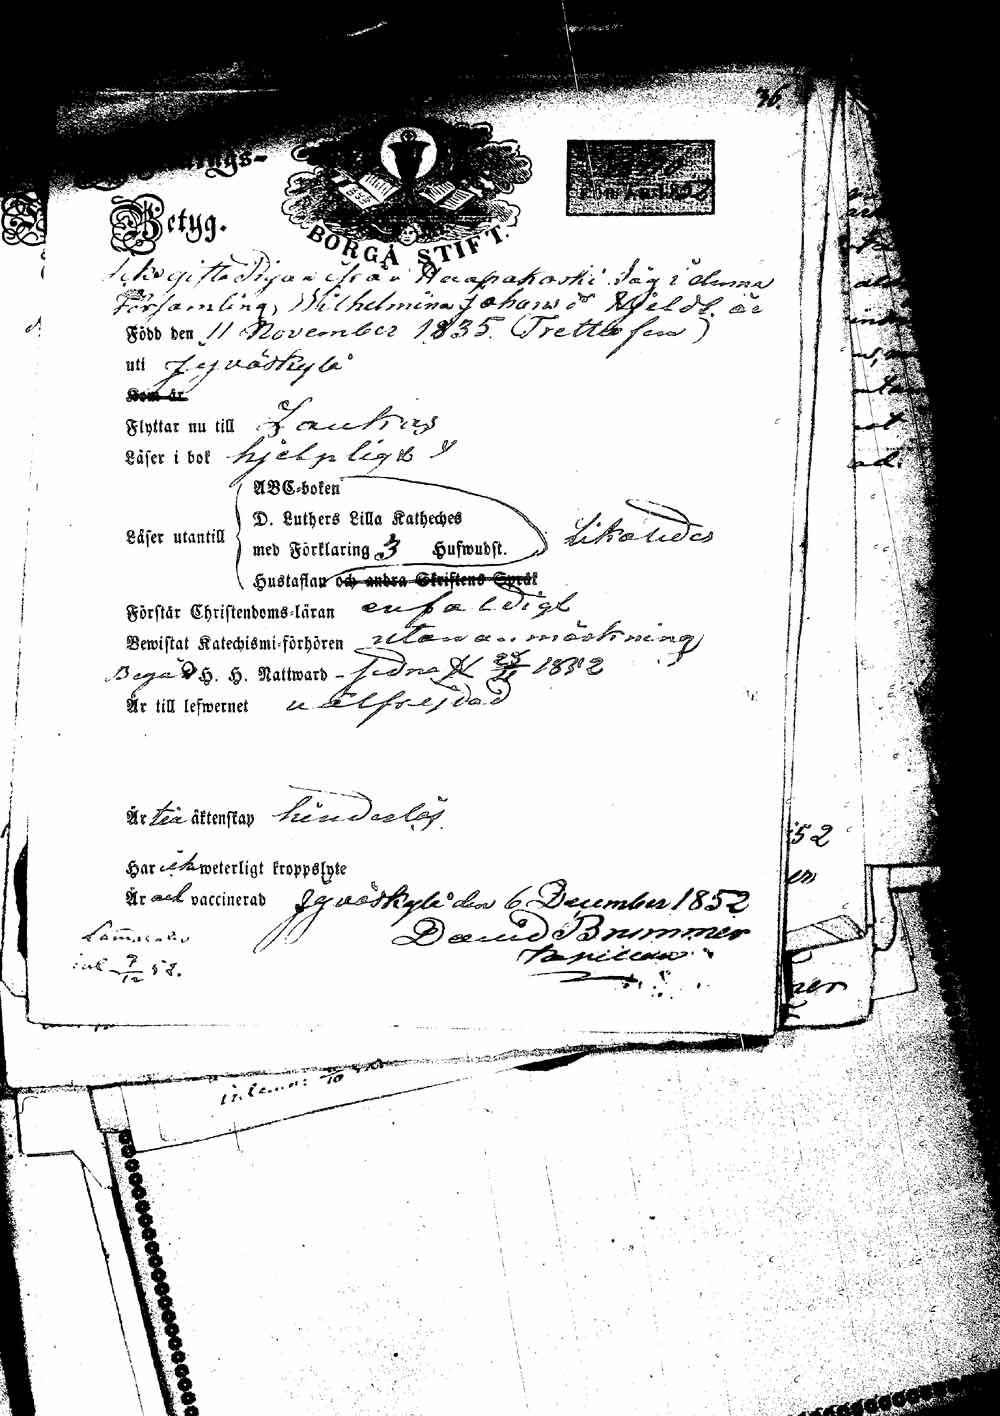 36.
Betyg.
BORGÅ STIFT.
Ogifta Pigan ifrån Haapakoski Säg i denna
Församling, Wilhelmina Johansdr Hjeldt, är
Född den 11 November 1835. (Trettiofem)
uti Jyväskylä
Kom år
Flyttar nu till Laukas
Läser i bok hjelpligt
ABC-boken
D. Luthers Lilla Katheches
Läser utantill med Förklaring 3 Hufwudst. Likaledes
Hustaflan och andra Skriftens Språk
Förstår Christendoms-läran enfaldigt
Bewistat Katechismi-förhören utan anmärkning
Begåd H. H. Nattward sedna 1852
Är till lefwernet välfrejdad
Är till äktenskap hinderlös
Har ick weterligt kroppslyte
Är och vaccinerad Jyväskylä den 6 December 1852
David Brummer
inl 9/12 52.